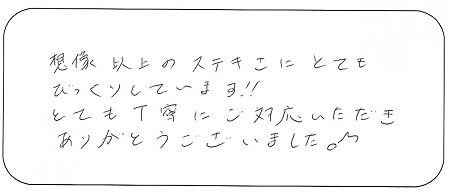 想像以上のステキさにとても
びっくりしています!!
とても丁寧にご対応いただき
ありがとうございました。♪